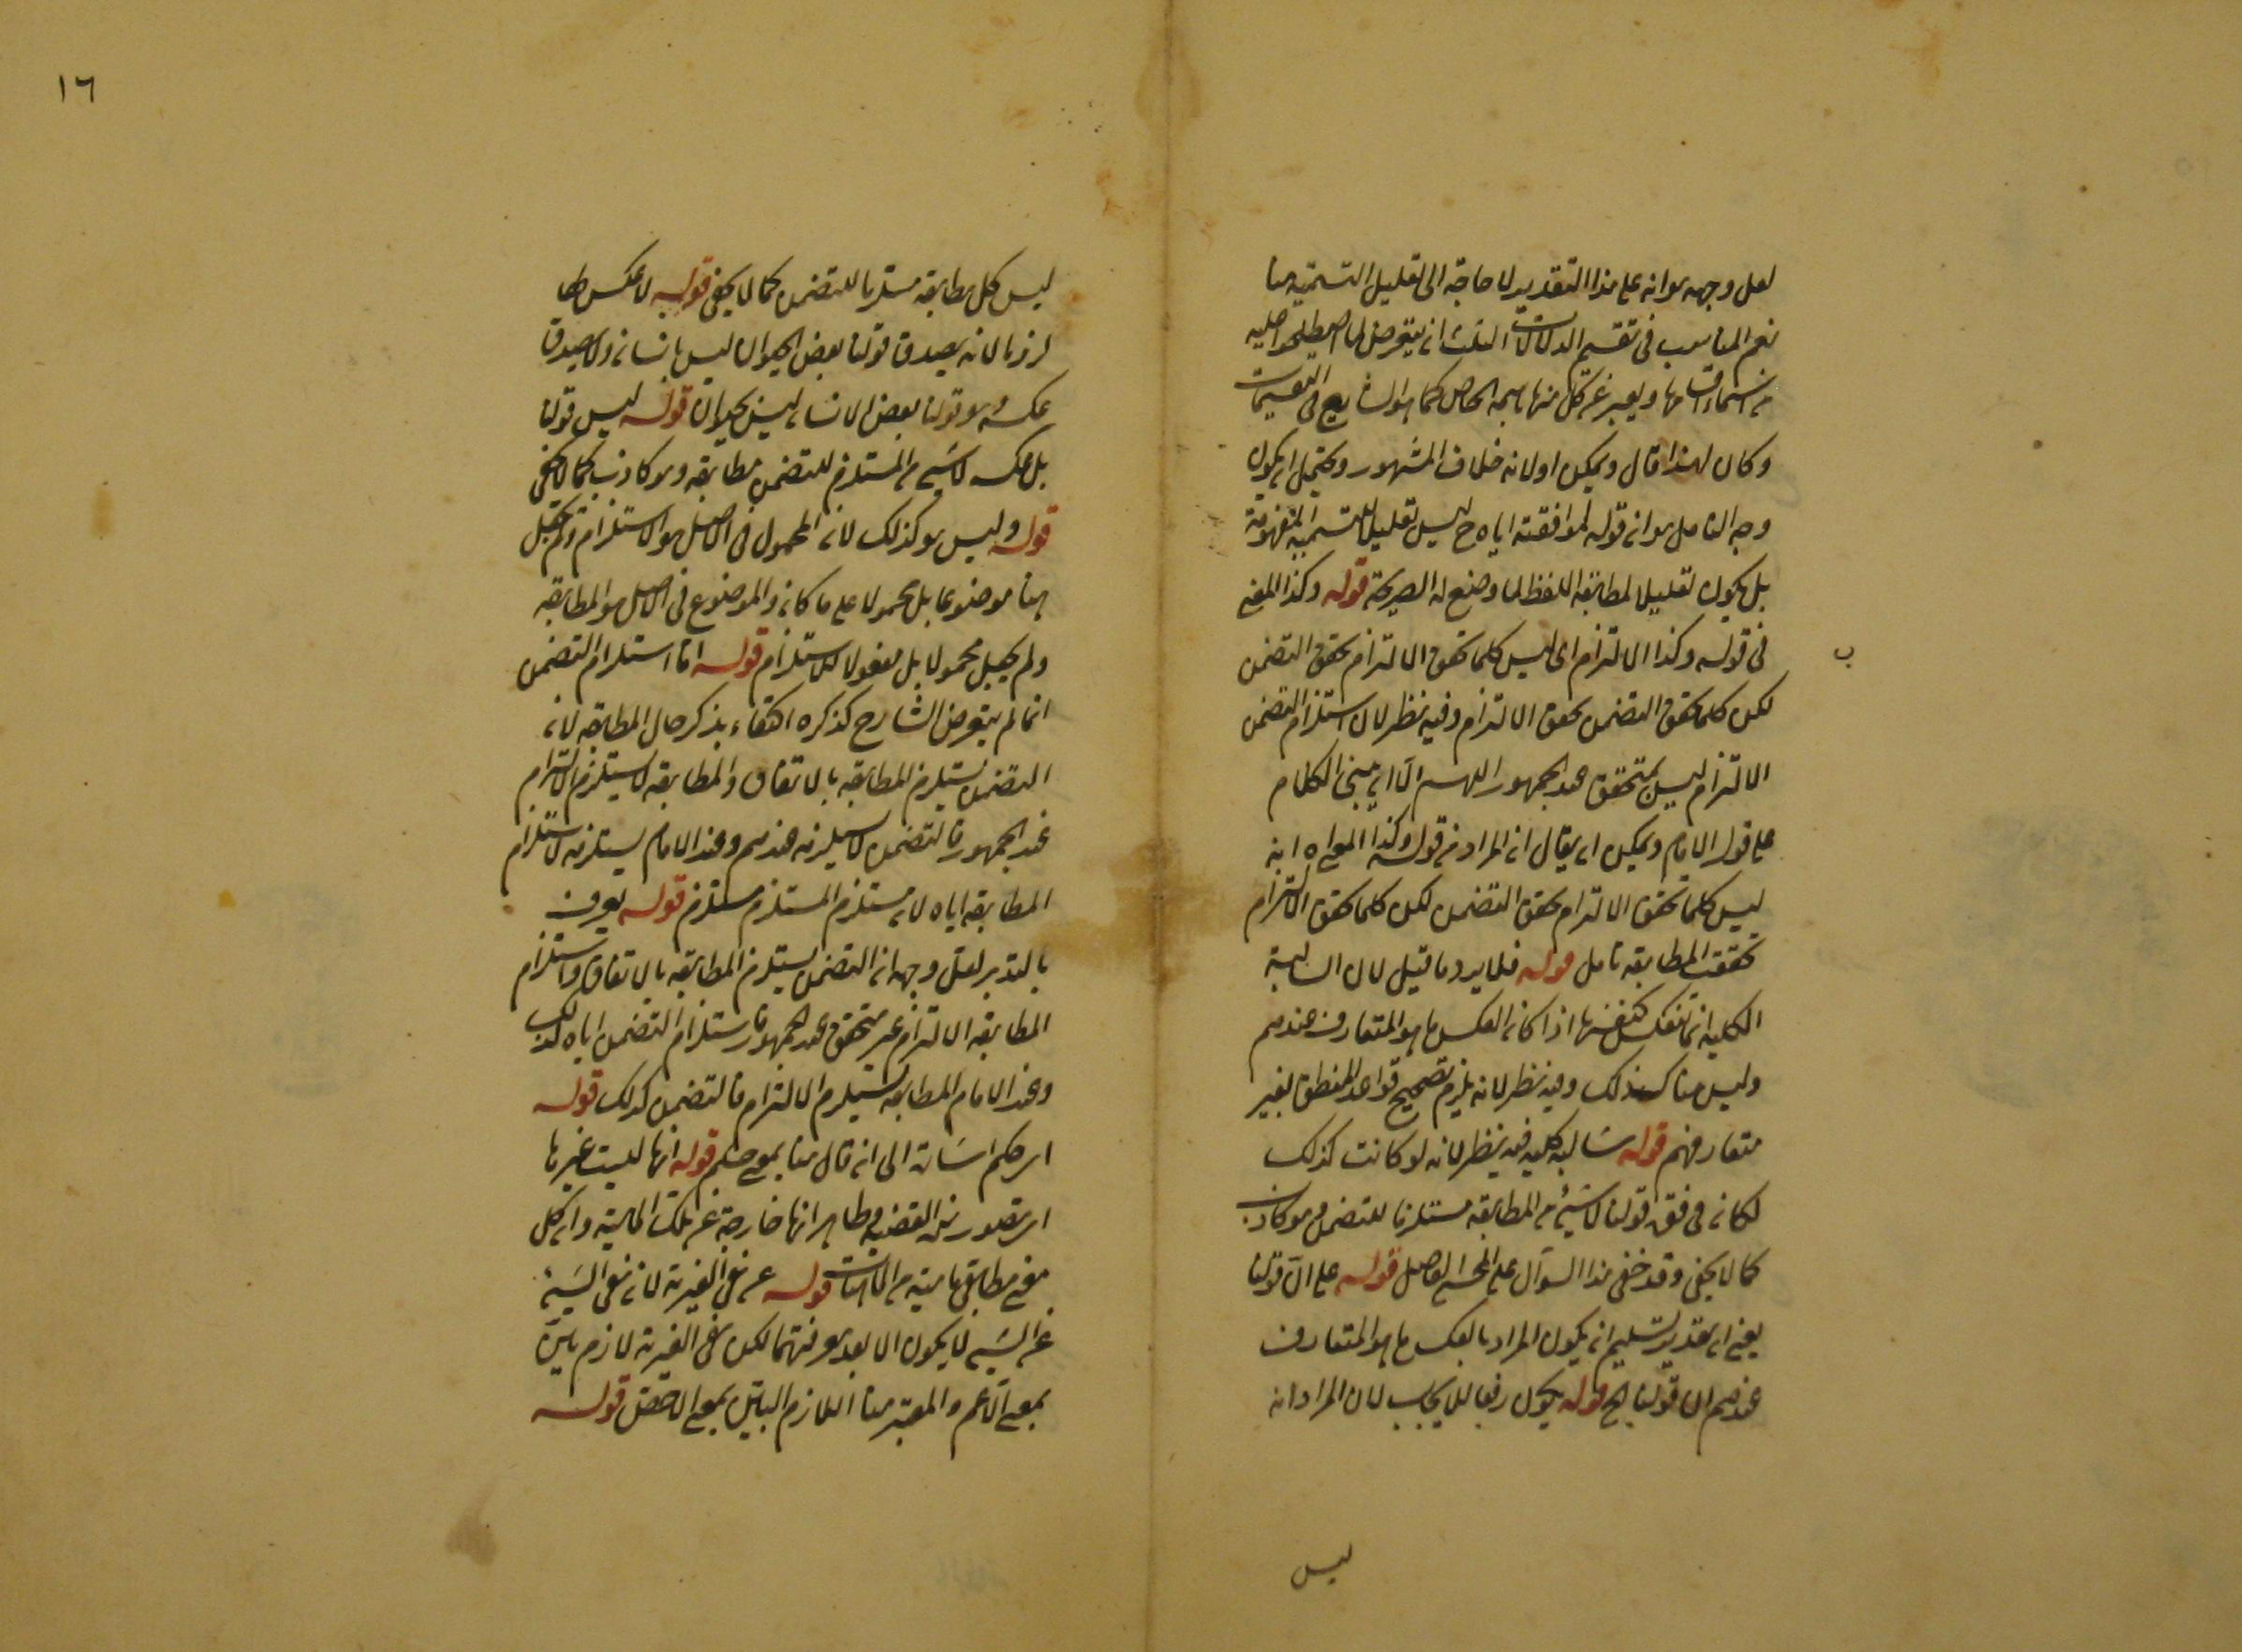 لعل وجهه هو انه على هذا التقدير لا حاجة الى تعليل التسمية هنا
نعم المناسب في تقسيم الدلالات الثلث ان يتعرض لما اصطلحوا عليه
من اسماء اقسامها ويعبر عن كل منها باسمه الخاص كما هو الشايع في التقسيمات
وكان لهذا قال ويمكن اولانه خلاف المشهور ويحتمل ان يكون
وجه التامل هو ان قوله لموافقته اياه ح ليس تعليلا للتسمية المفهومة
بل يكون تعليلا لمطابقة اللفظ لما وضع له الصريحة قوله وكذا المعنى
في قوله وكذا الالتزام اى ليس كلما تحقق الالتزام تحقق التضمن
لكن كلما تحقق التضمن تحقق الالتزام وفيه نظر لان استلزام التضمن
الالتزام ليس بمتحقق عند الجمهور اللهم الا ان يبنى الكلام
على قول الامام ويمكن ان يقال ان المراد من قوله وكذا المعنى اه انه
ليس كلما تحقق الالتزام تحقق التضمن لكن كلما تحقق الالتزام
تحققت المطابقة تامل قوله فلا يرد ما قيل لان السالبة
الكلية انما تنعكس كنفسها اذا كان العكس ما هو المتعارف عندهم
وليس هنا كذلك وفيه نظر لانه يلزم تصحيح قواعد المنطق بغير
متعارفهم قوله سالبة كلية فيه نظر لانه لو كانت كذلك
لكان في قوة قولنا لا شيء من المطابقة مستلزما للتضمن وهو كاذب
كما لا يخفى وقد خفى هذا السؤال على المحشى الفاضل قوله على ان قولنا
يعنى ان بتقدير تسليم ان يكون المراد بالعكس ما هو المتعارف
عندهم ان قولنا الخ قوله يكون رفعا للايجاب لان المراد انه
ليس
ب
١٦
ليس كل مطابقة مستلزما للتضمن كما لا يخفى قوله لا عكس لها
لزوما لانه يصدق قولنا بعض الحيوان ليس بانسان ولا يصدق
عكسه وهو قولنا بعض الانسان ليس بحيوان قوله ليس قولنا
بل عكسه لا شيء من المستلزم للتضمن مطابقة وهو كاذب كما لا يخفى
قوله وليس هو كذلك لان المحمول في الاصل هو الاستلزام ولم يجعل
هنا موضوعا بل محمولا على ما كان والموضوع في الاصل هو المطابقة
ولم يجعل محمولا بل مفعولا للاستلزام قوله اما استلزام التضمن
انما لم يتعرض الشارح لذكره اكتفاء بذكر حال المطابقة لان
التضمن يستلزم المطابقة بالاتفاق والمطابقة لا يستلزم الالتزام
عند الجمهور فالتضمن لا يستلزمه عندهم وعند الامام يستلزمه لاستلزام
المطابقة اياه لان مستلزم المستلزم مستلزم قوله يعرف
بالتدبر لعل وجهه ان التضمن يستلزم المطابقة بالاتفاق واستلزام
المطابقة الالتزام غير متحقق عند الجمهور فاستلزام التضمن اياه كذلك
وعند الامام المطابقة يستلزم الالتزام فالتضمن كذلك قوله
اى حكم اشارة الى ان قال هنا بمعنى حكم قوله انها ليست غيرها
اى تصور هذه القضية وظاهر انها خارجة عن تلك الماهية وان كل
معنى مطابقى ماهية من الماهيات قوله عن نفى الغيرية لان نفى الشيء
عن الشيء لا يكون الا بعد معرفتهما لكن نفى الغيرية لازم بين
بمعنى الاعم والمعتبر هنا اللازم البين بمعنى الاخص قوله